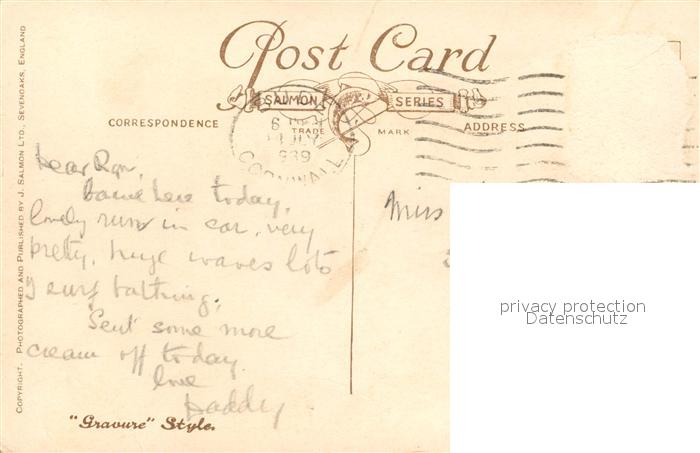 Post Card
SALMON SERIES
TRADE MARK
CORRESPONDENCE
ADDRESS
6
JLY
1939
CORNWALL
Dear
Came here today,
lovely run in car, very
pretty, huge waves lots
of surf bathing.
Sent some more
cream off today.
love
Daddy
"Gravure" Style.
Miss
COPYRIGHT. PHOTOGRAPHED AND PUBLISHED BY J. SALMON LTD., SEVENOAKS, ENGLAND
privacy protection
Datenschutz